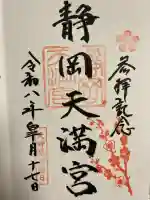 参拝記念
静岡天満宮
令和八年皐月十七日